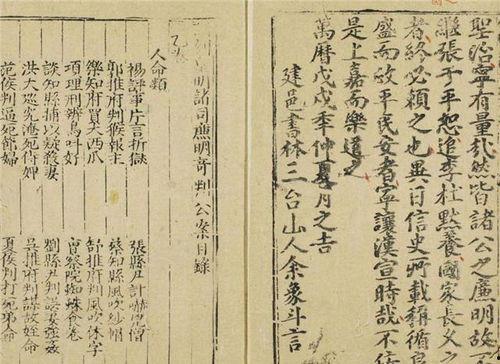 聖治寧有量哉然皆諸公之廉明故
繼張于平恕追李杜默養國家長久之
者終必賴之也異日信史所載稱循良
盛而政平民安者寧讓漢宣時哉不佞
是上嘉而樂道之
萬曆戊戌秊仲夏月之吉
建邑書林三台山人余象斗言
皇明諸司廉明奇判公案目錄
人命類
楊評事片言折獄 張縣尹計嚇凶僧
郭推府判猴報主 蔡知縣風吹紗帽
樂知府買大西瓜 舒推府判風吹休字
項理刑辨鳥叫好 曾察院蜘蛛食卷
談知縣捕以疑殺妻 劉縣尹判誤妻強姦
洪大巡究淹死侍婢 吳推府判謀故姪命
范侯判逼死節婦 夏侯判打死弟命